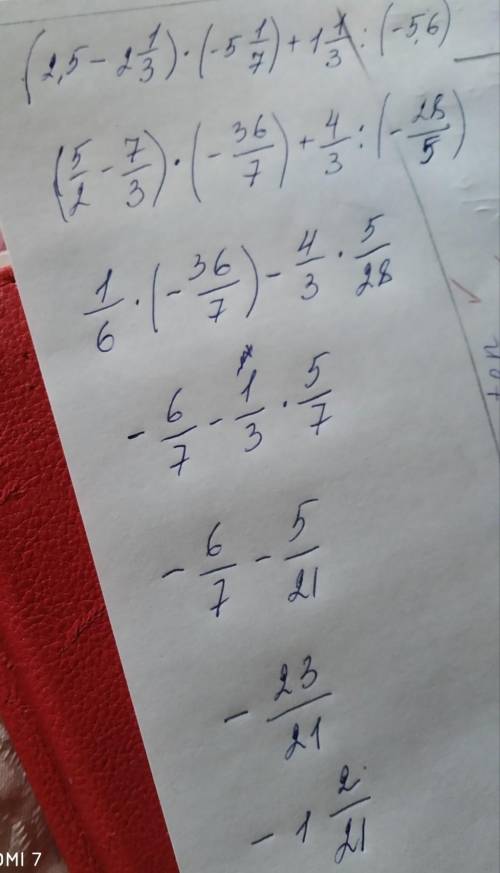 (2,5 - 2 1/3) · (-5 1/7) + 1 1/3 : (-5,6)
(5/2 - 7/3) · (- 36/7) + 4/3 : (- 28/5)
1/6 · (- 36/7) - 4/3 · 5/28
- 6/7 - 1/3 · 5/7
- 6/7 - 5/21
- 23/21
- 1 2/21